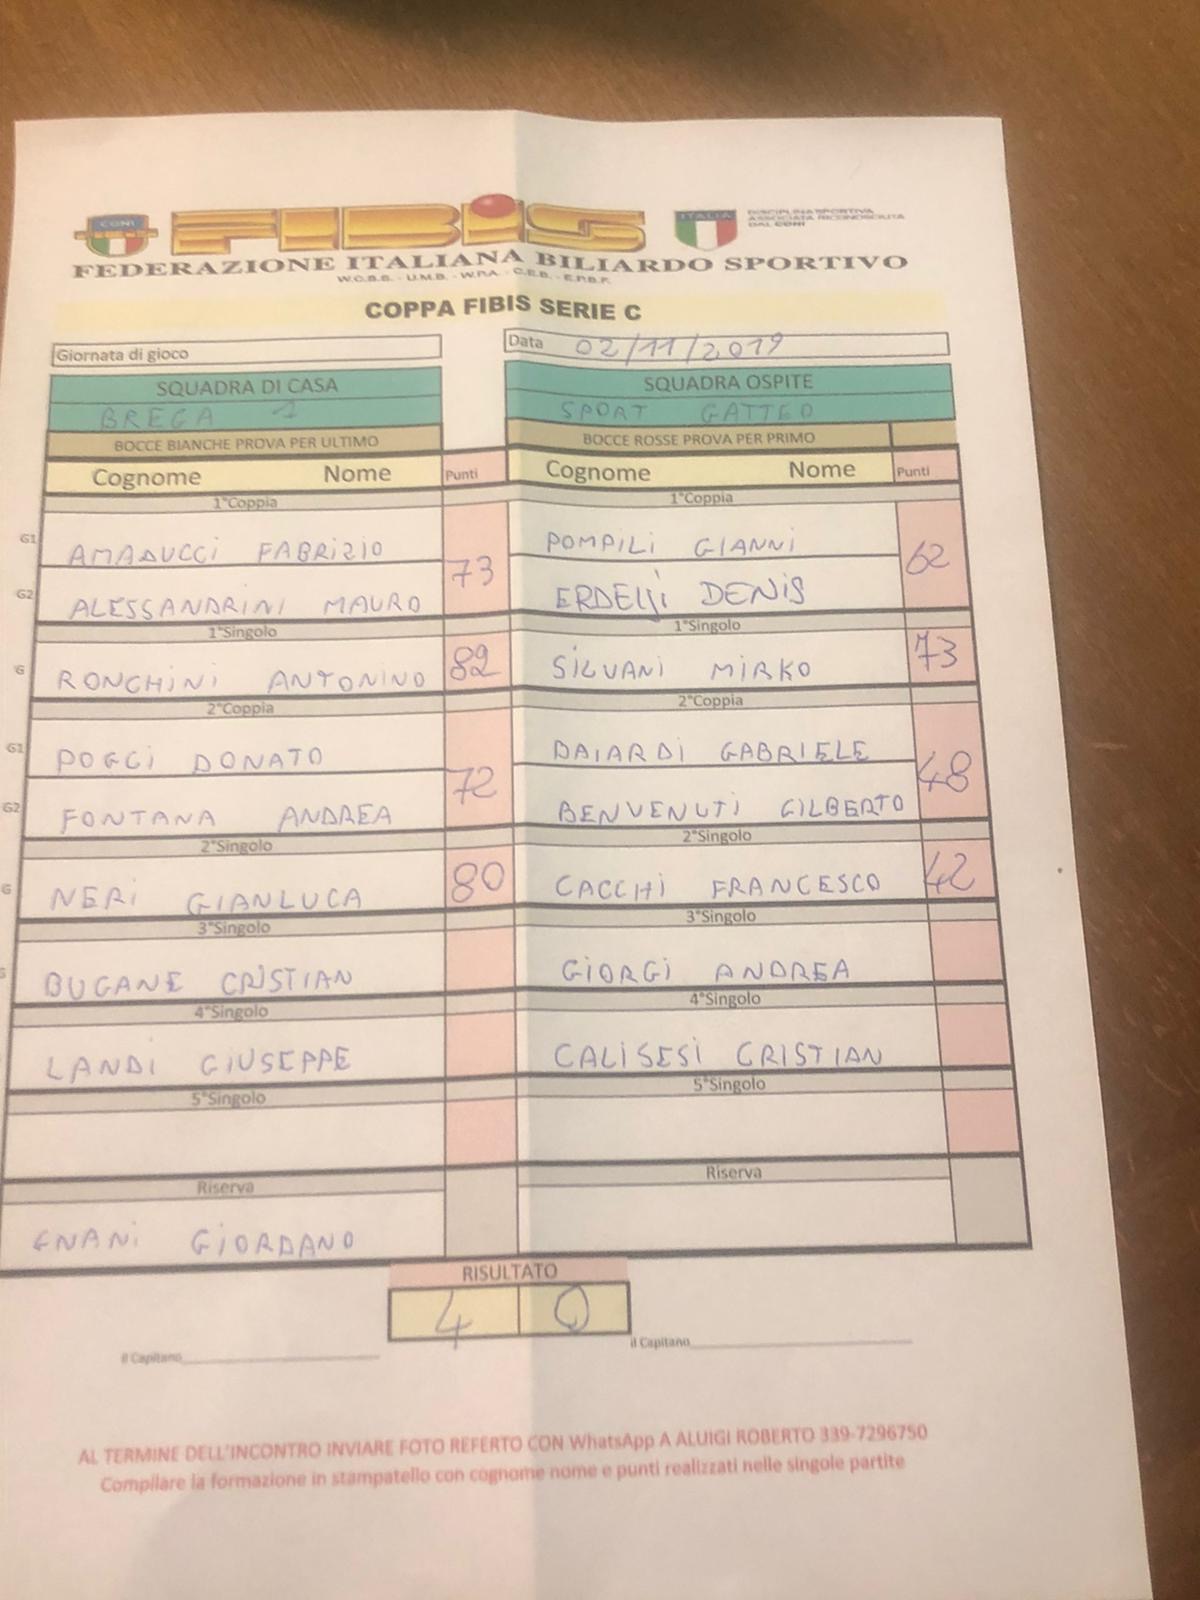 CONI
FIBiS
ITALIA
DISCIPLINA SPORTIVA
ASSOCIATA RICONOSCIUTA
DAL CONI
FEDERAZIONE ITALIANA BILIARDO SPORTIVO
W.C.B.S. - U.M.B. - W.P.A. - C.E.B. - E.P.B.F.
COPPA FIBIS SERIE C
Giornata di gioco
Data 02/11/2019
SQUADRA DI CASA SQUADRA OSPITE
BREGA 1 SPORT GATTEO
BOCCE BIANCHE PROVA PER ULTIMO BOCCE ROSSE PROVA PER PRIMO
Cognome Nome Punti Cognome Nome Punti
1°Coppia 1°Coppia
G1 AMADUCCI FABRIZIO 73 POMPILI GIANNI 62
G2 ALESSANDRINI MAURO DENIS
1°Singolo 1°Singolo
G RONCHINI ANTONINO 82 SILVANI MIRKO 73
2°Coppia 2°Coppia
G1 POGGI DONATO 72 BAIARDI GABRIELE 48
G2 FONTANA ANDREA BENVENUTI GILBERTO
2°Singolo 2°Singolo
G NERI GIANLUCA 80 CACCHI FRANCESCO 42
3°Singolo 3°Singolo
BUGANE CRISTIAN GIORGI ANDREA
4°Singolo 4°Singolo
LANDI GIUSEPPE CALISESI CRISTIAN
5°Singolo 5°Singolo
Riserva Riserva
GIORDANO
RISULTATO
4 0
il Capitano il Capitano
AL TERMINE DELL'INCONTRO INVIARE FOTO REFERTO CON WhatsApp A ALUIGI ROBERTO 339-7296750
Compilare la formazione in stampatello con cognome nome e punti realizzati nelle singole partite